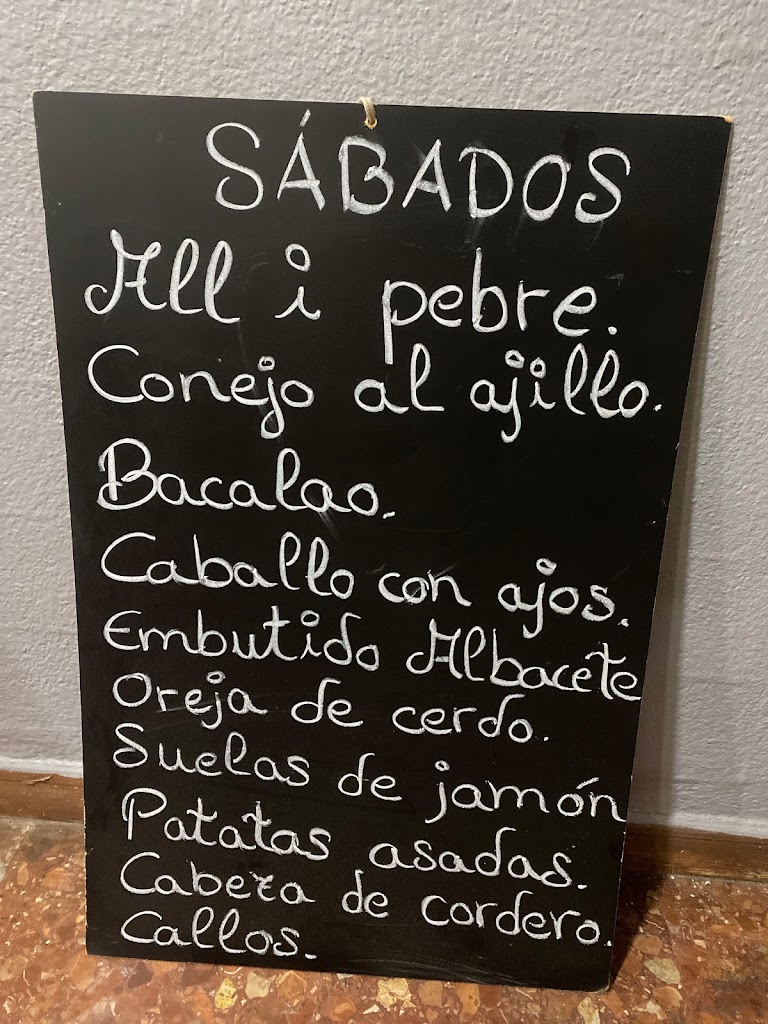 SÁBADOS
All i pebre.
Conejo al ajillo.
Bacalao.
Caballo con ajos.
Embutido Albacete
Oreja de cerdo.
Suelas de jamón
Patatas asadas.
Cabeza de cordero.
Callos.